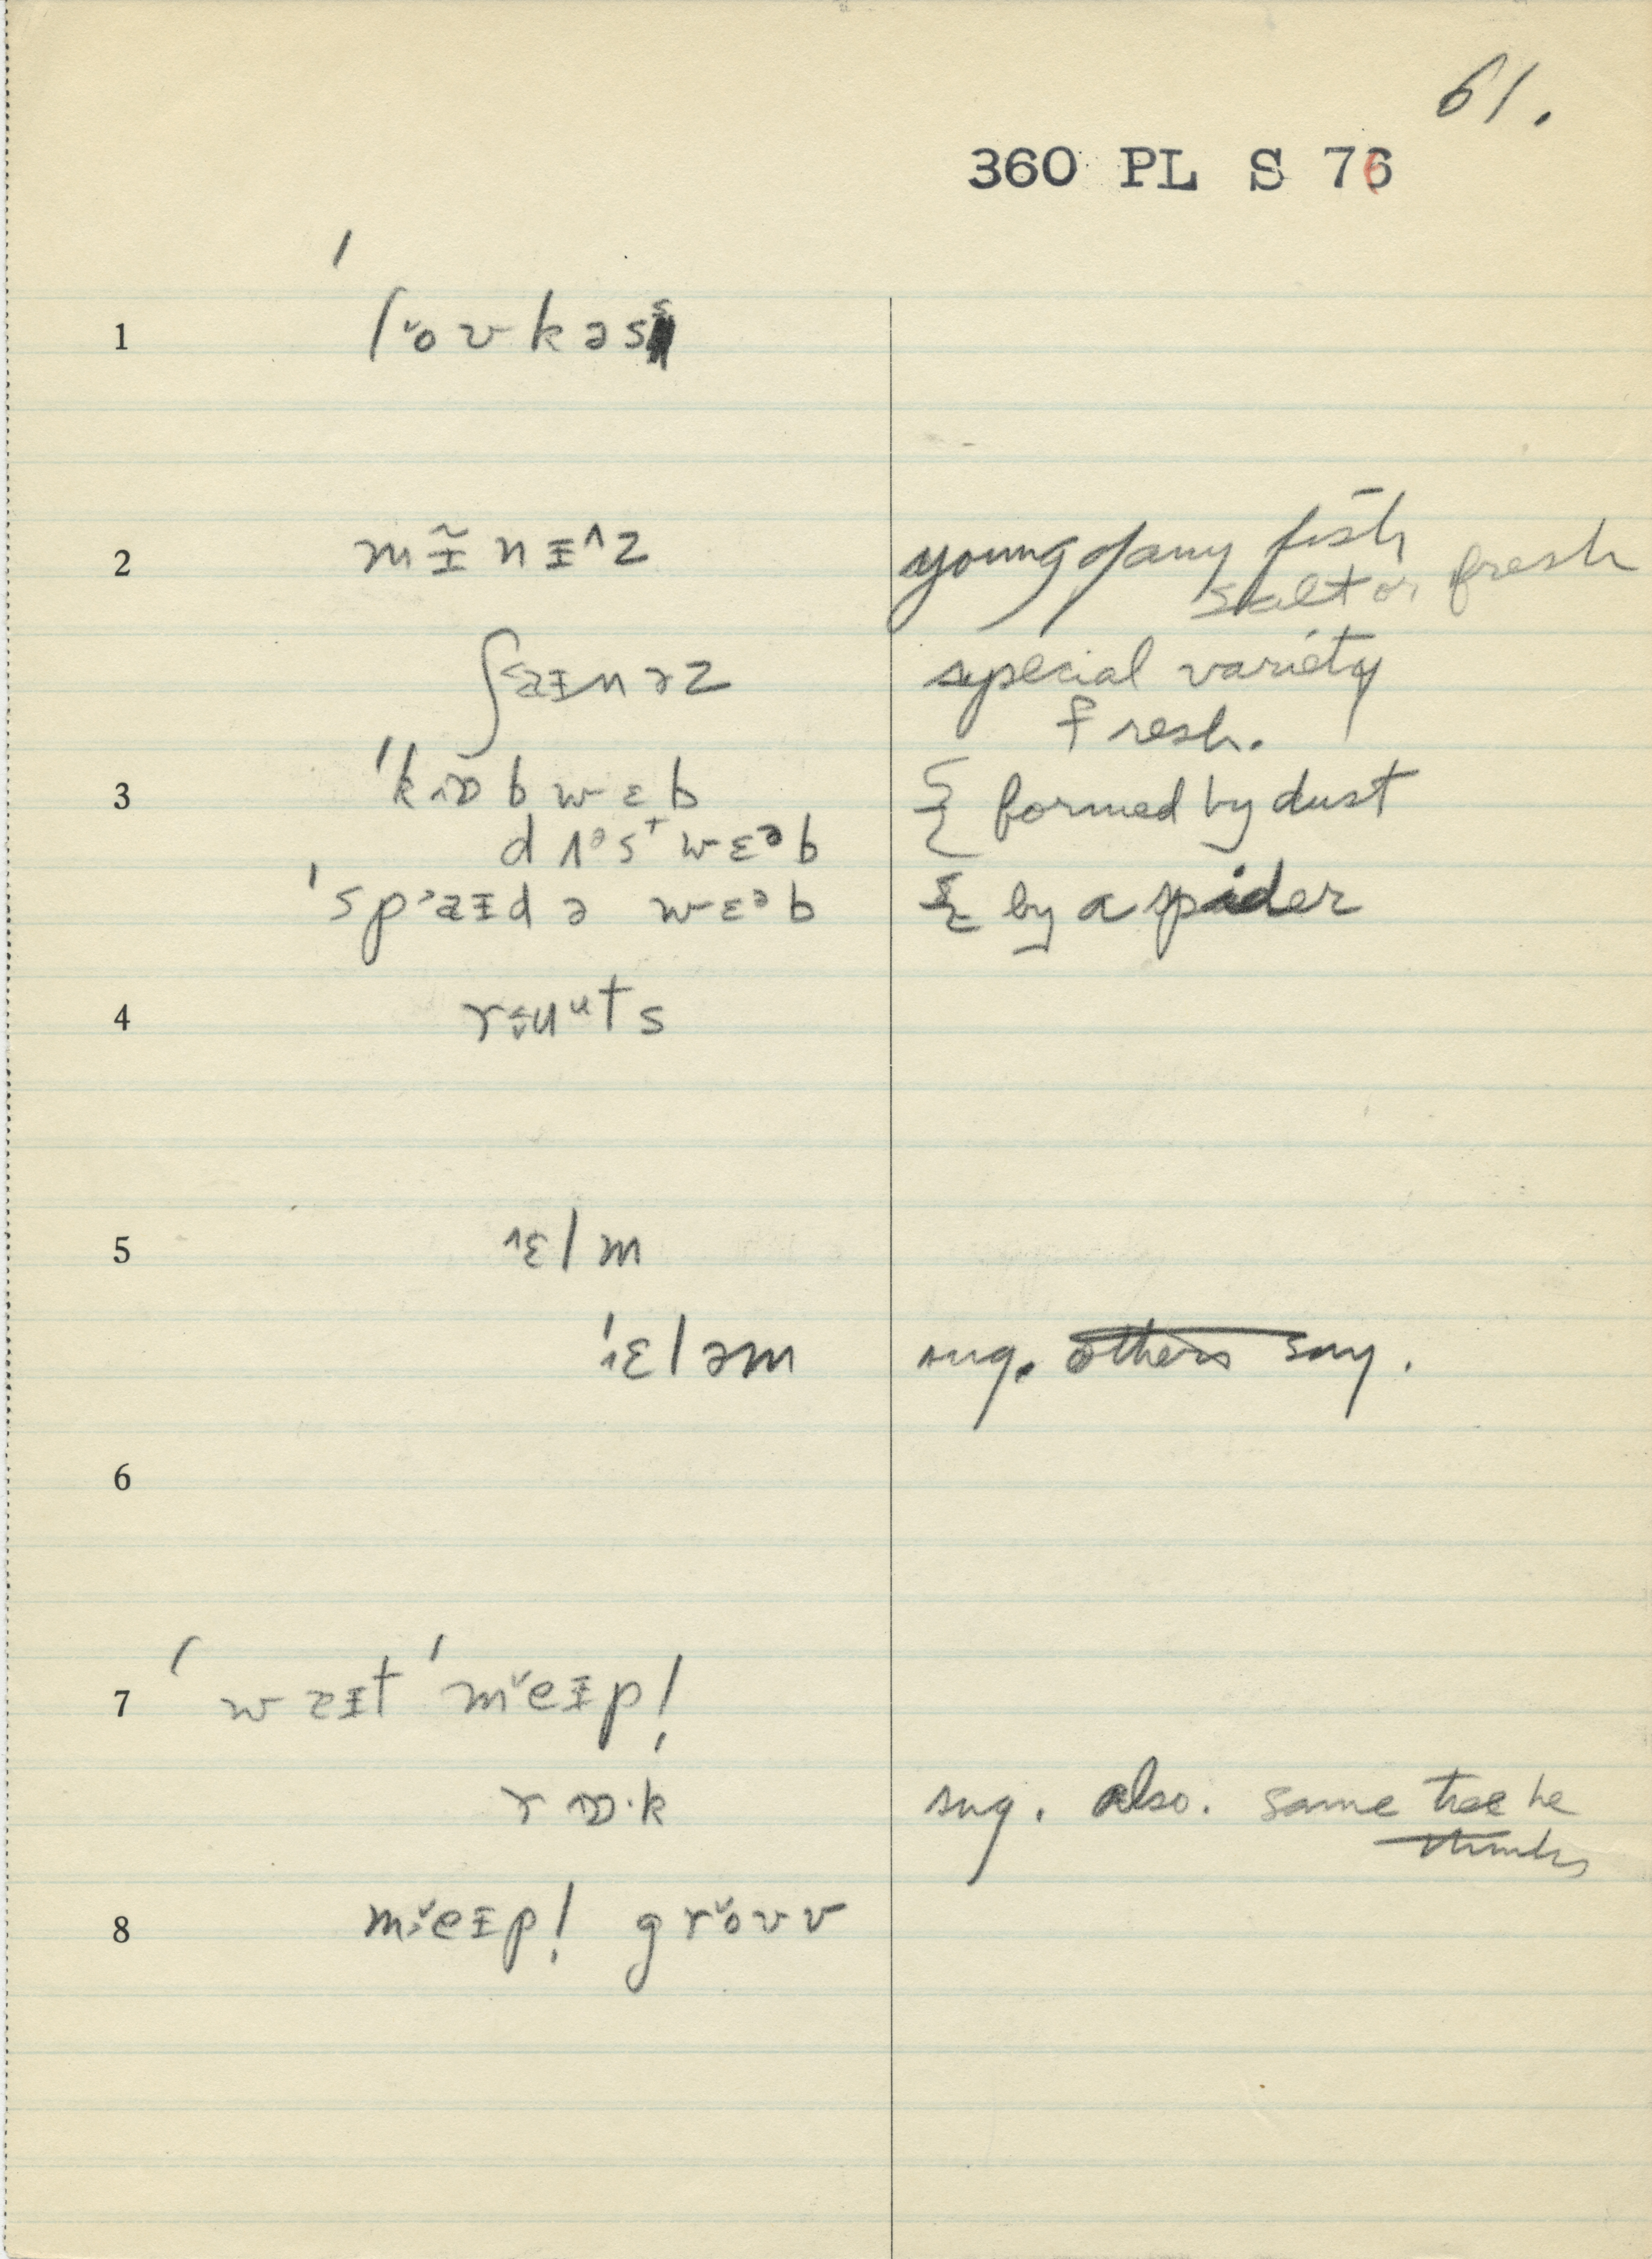 61.
360 PL S 76
1 ˈlo˅ʊkəs
2 mɪ̵̃nɪ̵^z young of any fish
salt or fresh
ʃaɪ̵nəz special variety
fresh.
3 ˈkɒbwɛb { formed by dust
dʌᵊstwɛᵊb
ˈspaɪ̵də wɛᵊb { by a spider
4 ruᵘts
5 ɛlm
ˈɛləm sug. others say.
6
7 ˈwɐɪ̵t ˈme˅ɪ̵pl̩
rɒ·k sug. also. same tree he
thinks
8 me˅ɪ̵pl̩ gro˅ʊv